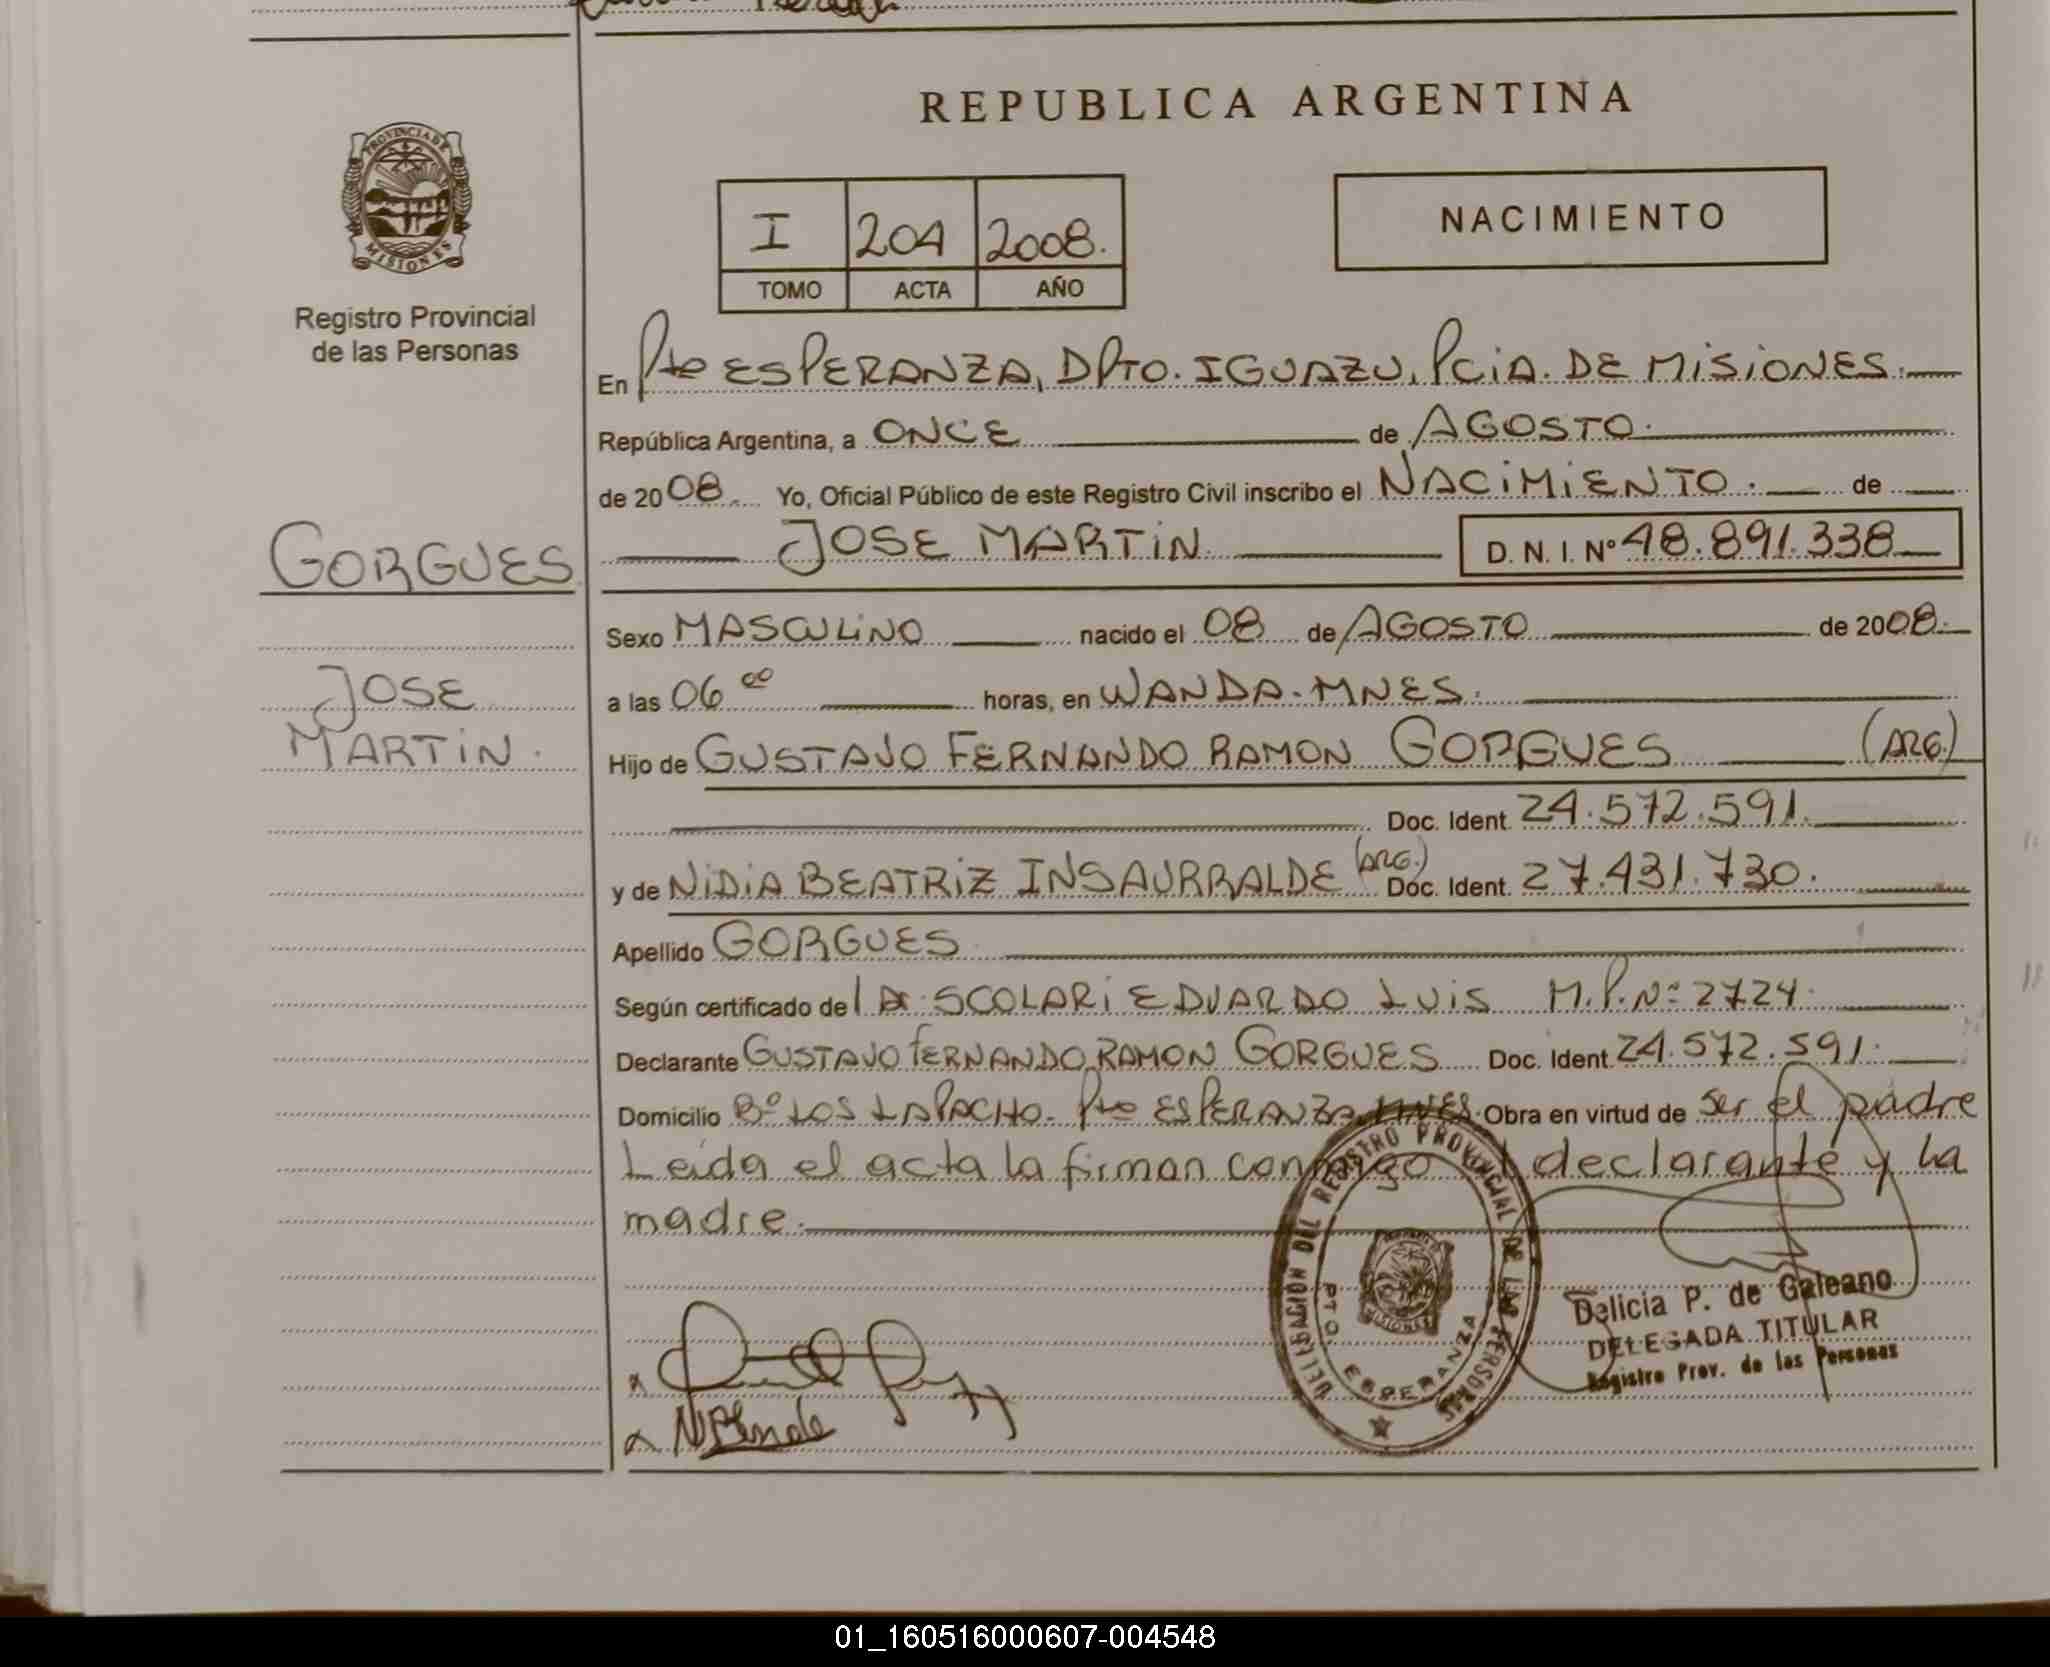 REPUBLICA ARGENTINA
PROVINCIA DE MISIONES
Registro Provincial
de las Personas
I 204 2008.
TOMO ACTA AÑO
NACIMIENTO
En Pto ESPERANZA, DPTO. IGUAZU, PCIA. DE MISIONES.
República Argentina, a ONCE de AGOSTO.
de 2008. Yo, Oficial Público de este Registro Civil inscribo el NACIMIENTO. de
JOSE MARTIN D. N. I. Nº 48.891.338
GORGUES
JOSE
MARTIN.
Sexo MASCULINO nacido el 08 de AGOSTO de 2008.
a las 06 00 horas, en WANDA. MNES.
Hijo de GUSTAVO FERNANDO RAMON GORGUES (ARG.)
Doc. Ident. 24.572.591.
y de NIDIA BEATRIZ INSAURRALDE (ARG.) Doc. Ident. 27.431.730.
Apellido GORGUES
Según certificado del Dr. SCOLARI EDUARDO LUIS M.P. Nº 2724.
Declarante GUSTAVO FERNANDO RAMON GORGUES Doc. Ident. 24.572.591.
Domicilio Bº LOS LAPACHO. Pto ESPERANZA MNES. Obra en virtud de ser el padre
Leida el acta la firman conmigo declarante y la
madre.
DELEGACION DEL REGISTRO PROVINCIAL DE LAS PERSONAS
PTO. ESPERANZA
MISIONES
Delicia P. de Galeano
DELEGADA TITULAR
Registro Prov. de las Personas
01_160516000607-004548